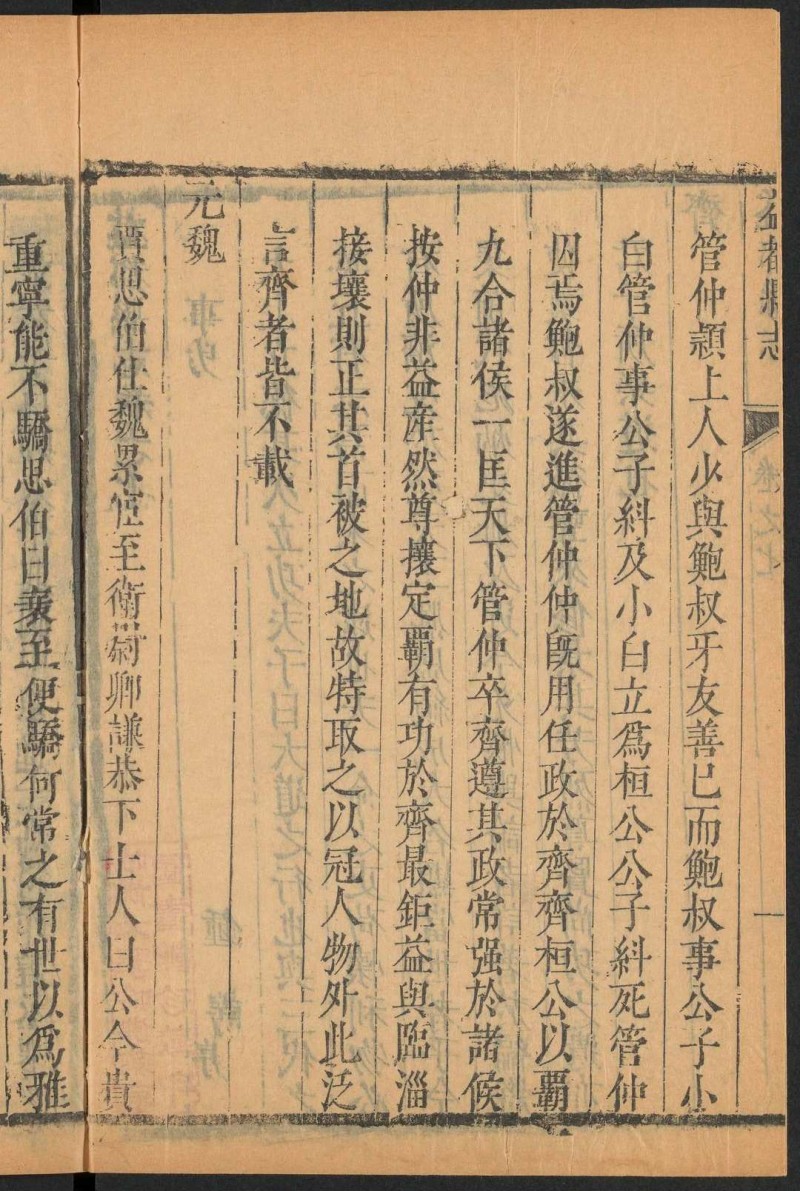 益都縣志
卷之七
一
管仲潁上人少與鮑叔牙友善已而鮑叔事公子小
白管仲事公子糾及小白立爲桓公公子糾死管仲
囚焉鮑叔遂進管仲仲旣用任政於齊齊桓公以覇
九合諸侯一匡天下管仲卒齊遵其政常强於諸侯
按仲非益產然尊攘定覇有功於齊最鉅益與臨淄
接壤則正其首被之地故特取之以冠人物外此泛
言齊者皆不載
元魏
賈思伯仕魏累官至衛尉卿謙恭下士人曰公今貴
重寧能不驕思伯曰衰至便驕何常之有世以爲雅